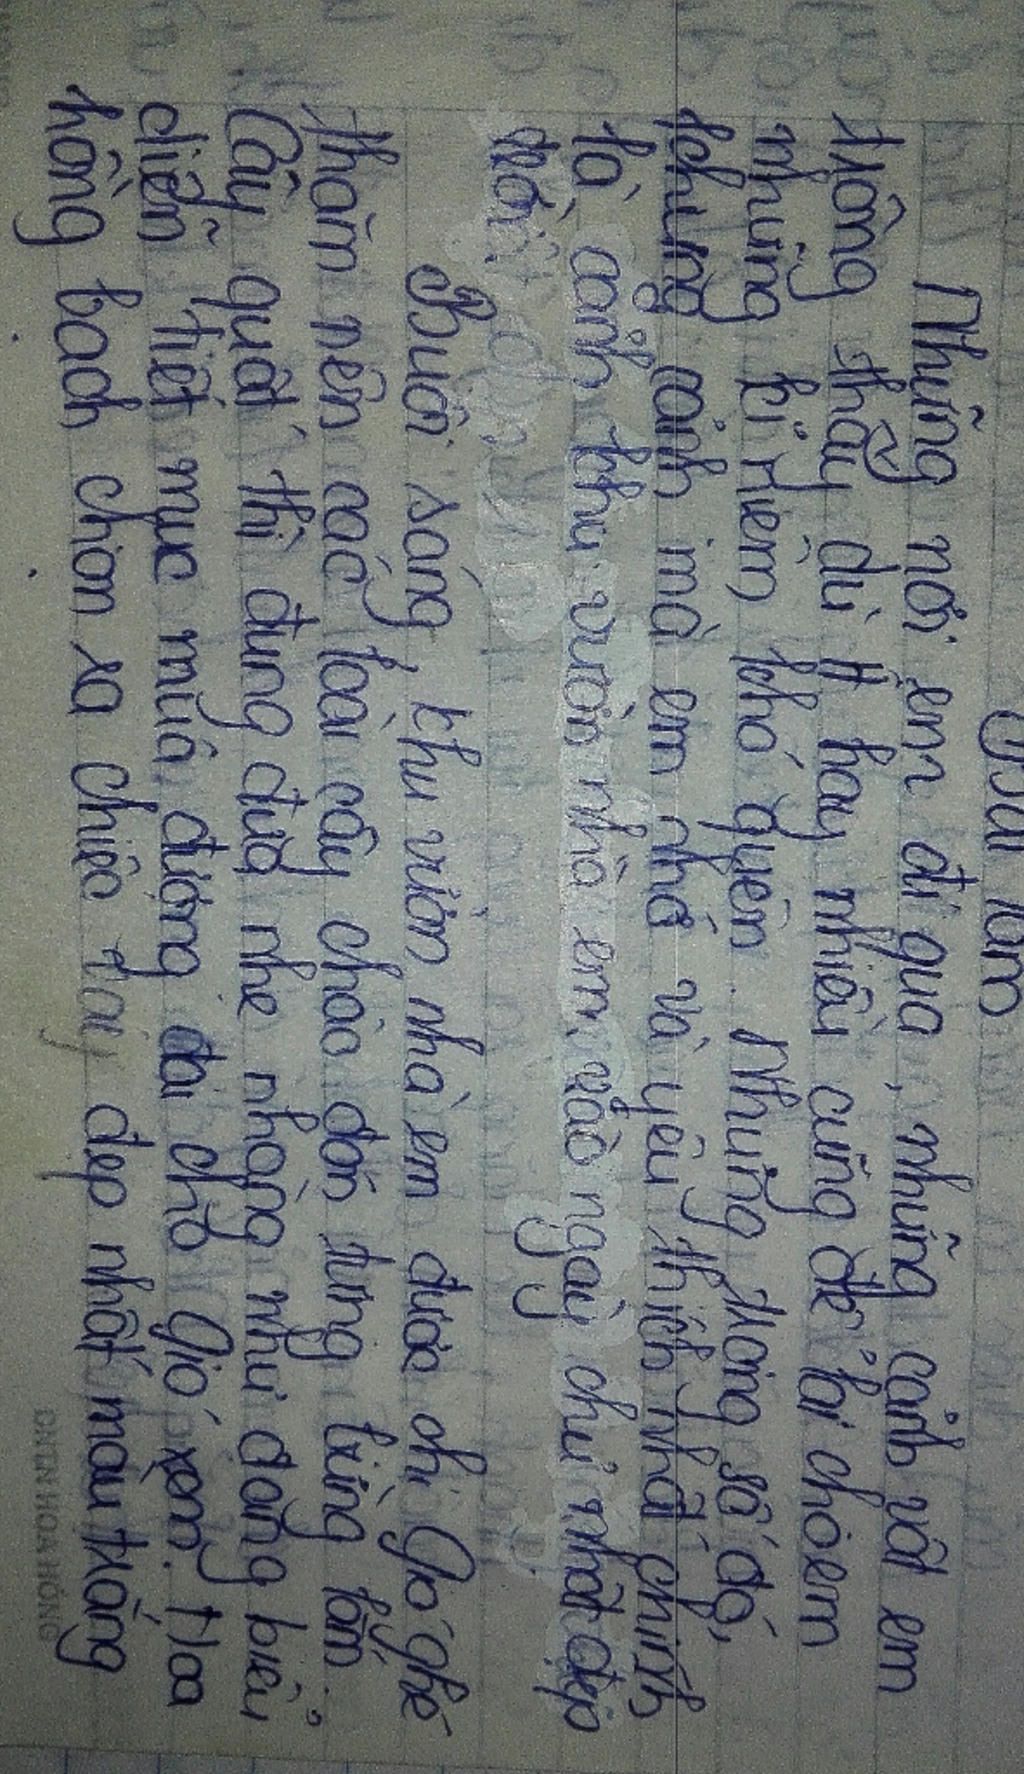 Bài làm
Những nơi em đi qua, những cảnh vật em
trông thấy dù ít hay nhiều cũng để lại cho em
những kỉ niệm khó quên. Nhưng trong số đó,
khung cảnh mà em nhớ và yêu thích nhất chính
là cảnh khu vườn nhà em vào ngày chủ nhật đẹp
trời.
Buổi sáng, khu vườn nhà em được chị Gió ghé
thăm nên các loài cây chào đón tưng bừng lắm.
Cây quất thì đung đưa nhẹ nhàng như đang biểu
diễn tiết mục múa đương đại cho Gió xem. Hoa
hồng bạch chọn ra chiếc váy đẹp nhất màu trắng
ĐINH HOA HỒNG